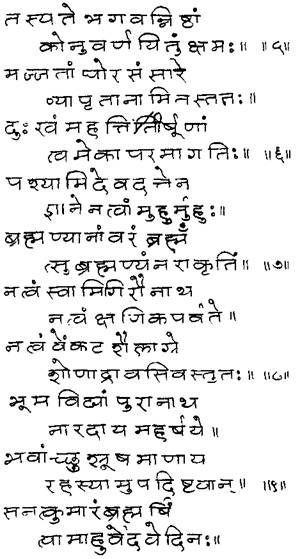 तस्य ते भगवन्निष्ठां
को नु वर्णयितुं क्षमः॥ ॥५॥
मज्जतां घोरसंसारे
व्यापृतानामितस्ततः॥
दुःखं महत्तितीर्षूणां
त्वमेका परमा गतिः॥ ॥६॥
पश्यामि देवदत्तेन
ज्ञानेन त्वां मुहुर्मुहुः॥
ब्रह्मण्यानां वरं ब्रह्मँ
त्सुब्रह्मण्यं नराकृतिं॥ ॥७॥
न त्वं स्वामिगिरौ नाथ
न त्वं क्षणिकपर्वते॥
न त्वं वेंकटशैलाग्रे
शोणाद्रावसि वस्तुतः॥ ॥८॥
भूमविद्यां पुरा नाथ
नारदाय महर्षये॥
भवांच्छुश्रूषमाणाय
रहस्यामुपदिष्टवान्॥ ॥९॥
सनत्कुमारं ब्रह्मर्षिं
त्वामाहुर्वेदवेदिनः॥